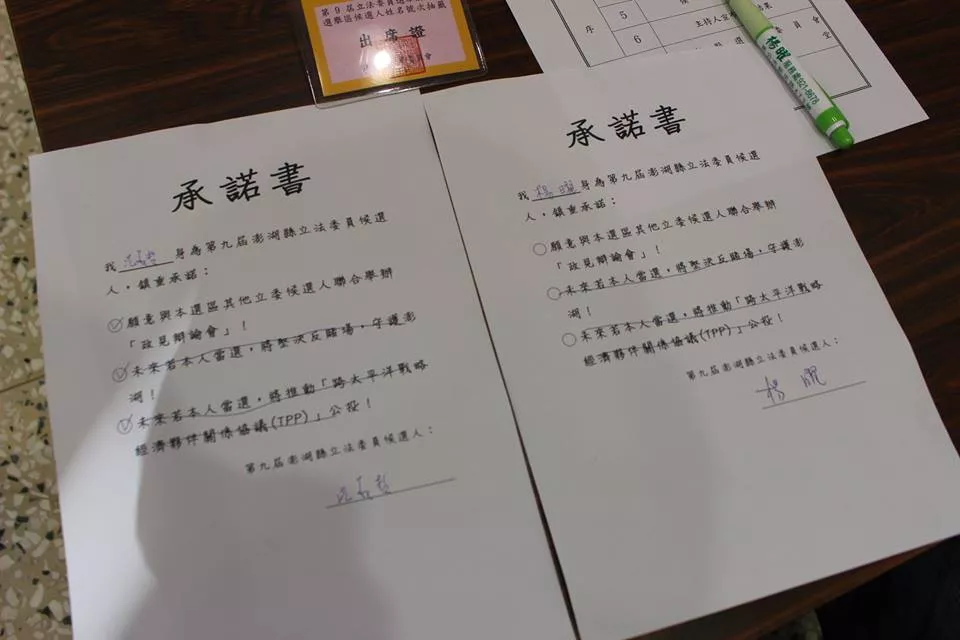 第9屆立法委員選舉
選舉區候選人姓名號次抽籤
出席證
序
5
候
6
主持人宣
果
會
堂
楊曜
承諾書
我
身為第九屆澎湖縣立法委員候選
人，鎮重承諾：
願意與本選區其他立委候選人聯合舉辦
「政見辯論會」！
未來若本人當選，將堅決反賭場，守護澎
湖！
未來若本人當選，將推動「跨太平洋戰略
經濟夥伴關係協議(TPP)」公投！
第九屆澎湖縣立法委員候選人：
承諾書
我 楊曜 身為第九屆澎湖縣立法委員候選
人，鎮重承諾：
願意與本選區其他立委候選人聯合舉辦
「政見辯論會」！
未來若本人當選，將堅決反賭場，守護澎
湖！
未來若本人當選，將推動「跨太平洋戰略
經濟夥伴關係協議(TPP)」公投！
第九屆澎湖縣立法委員候選人：
楊曜